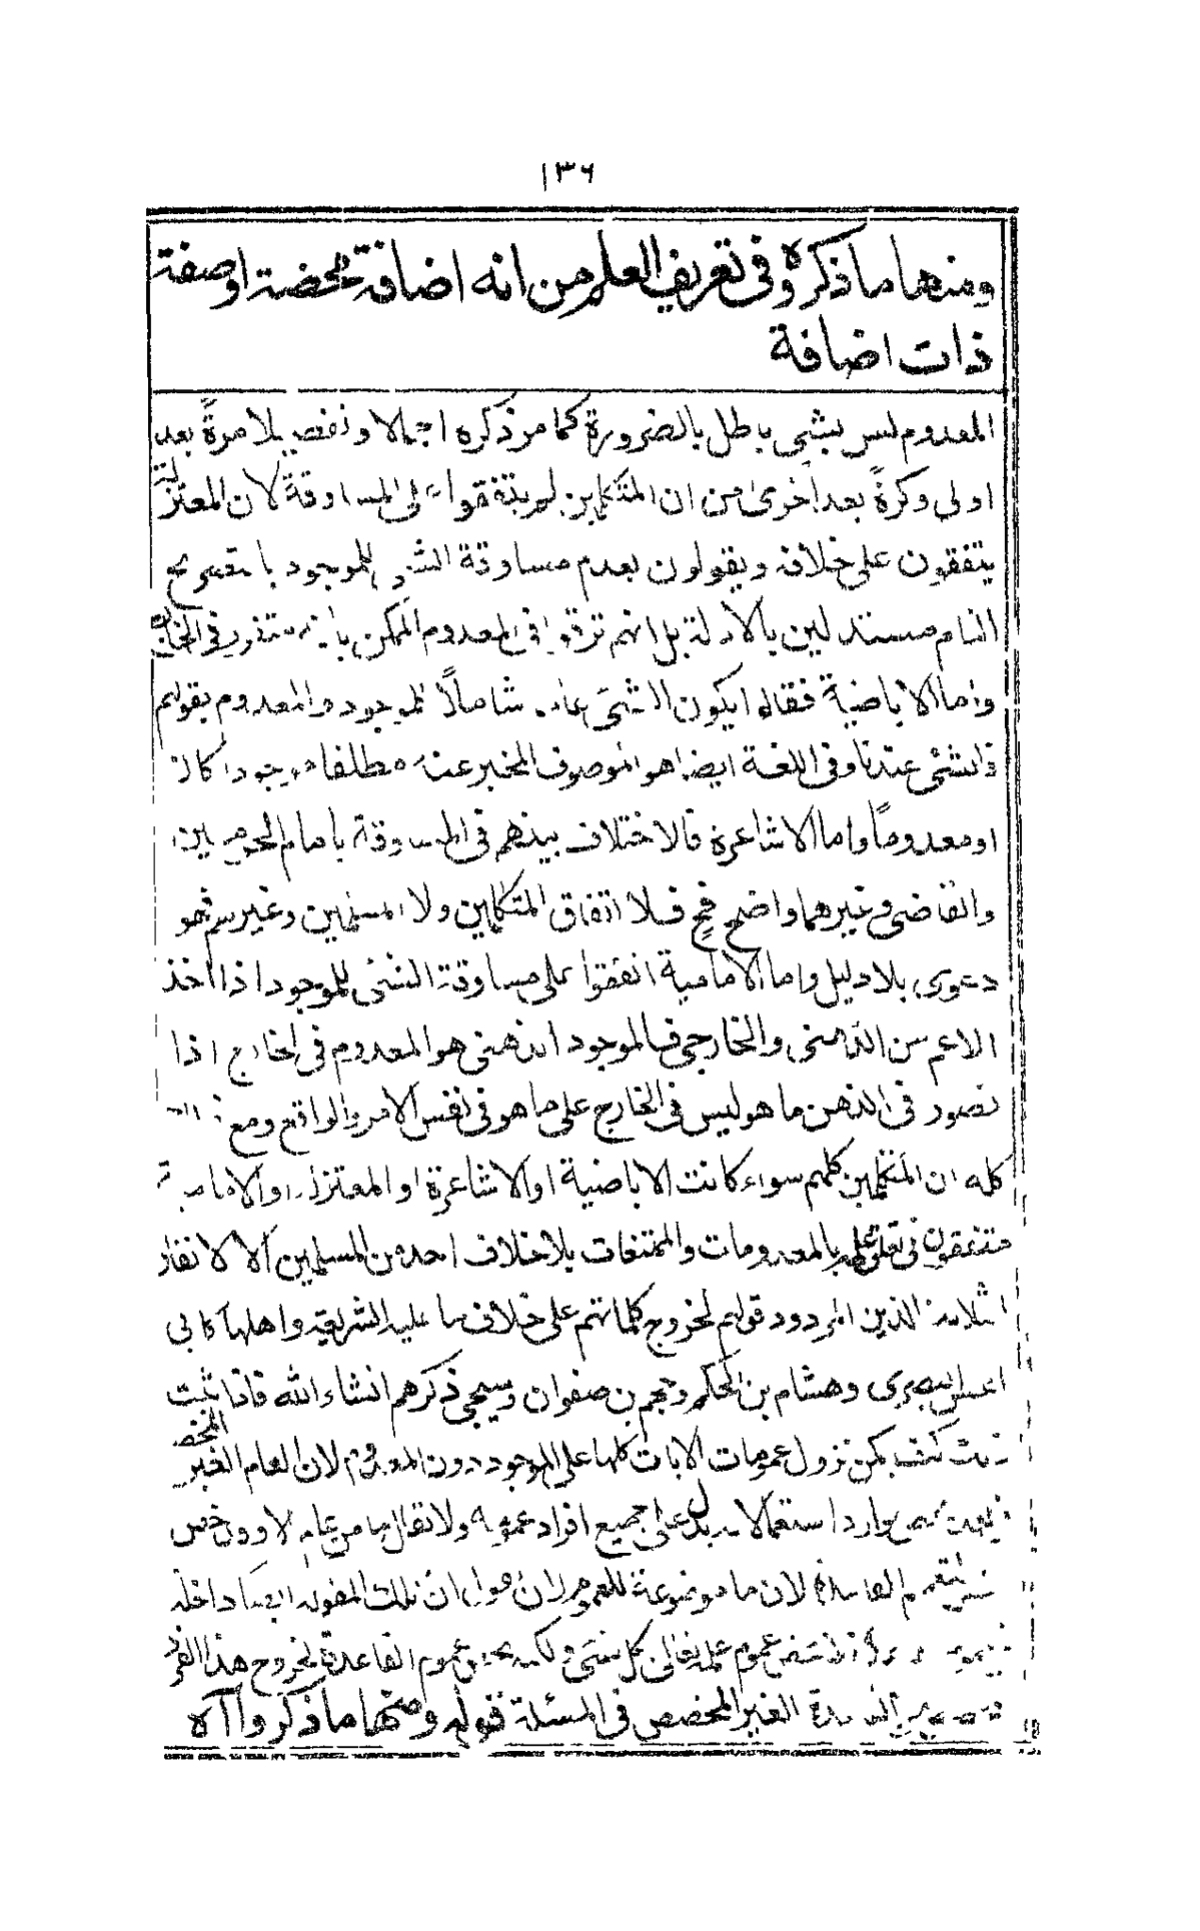 ١٣٦
ومنها ما ذكروه فى تعريف العلم من انه اضافة محضة او صفة
ذات اضافة
المعدوم ليس بشيى باطل بالضرورة كما مر ذكره اجمالا وتفصيلا مرةً بعد
اولى وكرةً بعد اخرى من ان المتكلمين لم يتفقوا على المساوقة لان المعتزلة
يتفقون على خلافه ويقولون بعدم مساوقة الشئ للموجود بالتصريح
التام مستدلين بالادلة بل انهم ترقوا فى المعدوم الممكن بانه متقرر فى الخارج
واما الاباضية فقالوا بكون الشئ عاما شاملاً للموجود والمعدوم بقولهم
فالشئى عندنا وفى اللغة ايضا هو الموصوف المخبر عنه مطلقا موجودا كان
او معدوماً واما الاشاعرة فالاختلاف بينهم فى المساوقة بامام الحرمين
والقاضى وغيرهما واضح فح فلا اتفاق المتكلمين ولا المسلمين وغيرهم فهو
دعوى بلا دليل واما الامامية اتفقوا على مساوقة الشئى للموجود اذا اخذ
الاعم من الذهنى والخارجى فالموجود الذهنى هو المعدوم فى الخارج اذا
تصور فى الذهن ما هو ليس فى الخارج على ما هو فى نفس الامر والواقع ومع
كله ان المتكلمين كلهم سواء كانت الاباضية او الاشاعرة او المعتزلة او الامامية
متفقون فى تعلق علمه بالمعدومات والممتنعات بلا خلاف احد من المسلمين الا الانفار
الثلاثة الذين المردود قولهم لخروج كلماتهم على خلاف ما عليه الشريعة واهلها كابى
الحسين البصرى وهشام بن الحكم وجهم بن صفوان وسيجى ذكرهم انشاء الله فاذا ثبت
كيف يمكن نزول عمومات الايات كلها على الموجود دون المعدوم لان العام الغير المخصص
استعمالا يدل على جميع افراد عمومه ولا نقال ما من عام الا وقد خص
لان ما موضوعة للعموم لان تلك المقولة ايضا داخلة
عموم علمه تعالى كل شئى ولكنه عموم القاعدة لخروج هذا الفرد
الغير المخصص فى المسئلة قوله ومنها ما ذكروا آه